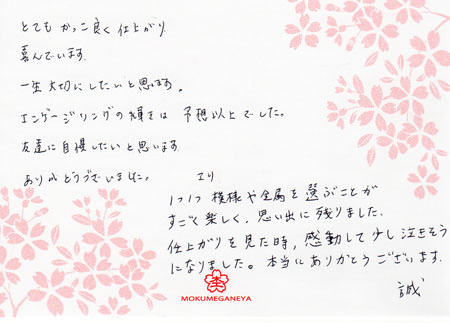 とても かっこ良く仕上がり
喜んでいます。
一生大切にしたいと思います。
エンゲージリングの輝きは 予想以上でした。
友達に自慢したいと思います
ありがとうございました。 エリ
1つ1つ 模様や金属を選ぶことが
すごく楽しく、思い出に残りました。
仕上がりを見た時、感動して少し泣きそう
になりました。本当にありがとうございます。
誠
MOKUMEGANEYA